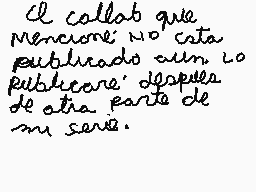 El collab que
mencioné NO esta
publicado aun, Lo
publicaré despues
de otra parte de
mi serie.